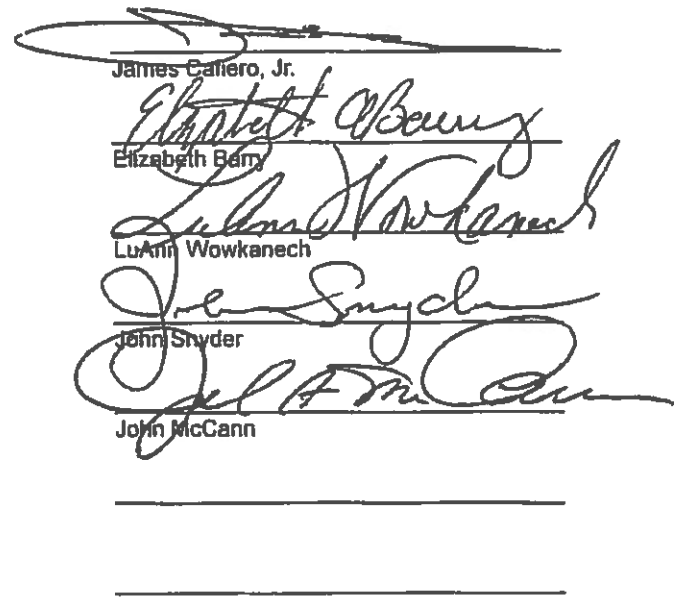 James Caliero, Jr.
Elizabeth A Barry
Elizabeth Barry
LuAnn Wowkanech
LuAnn Wowkanech
John Snyder
John Snyder
John A McCann
John McCann